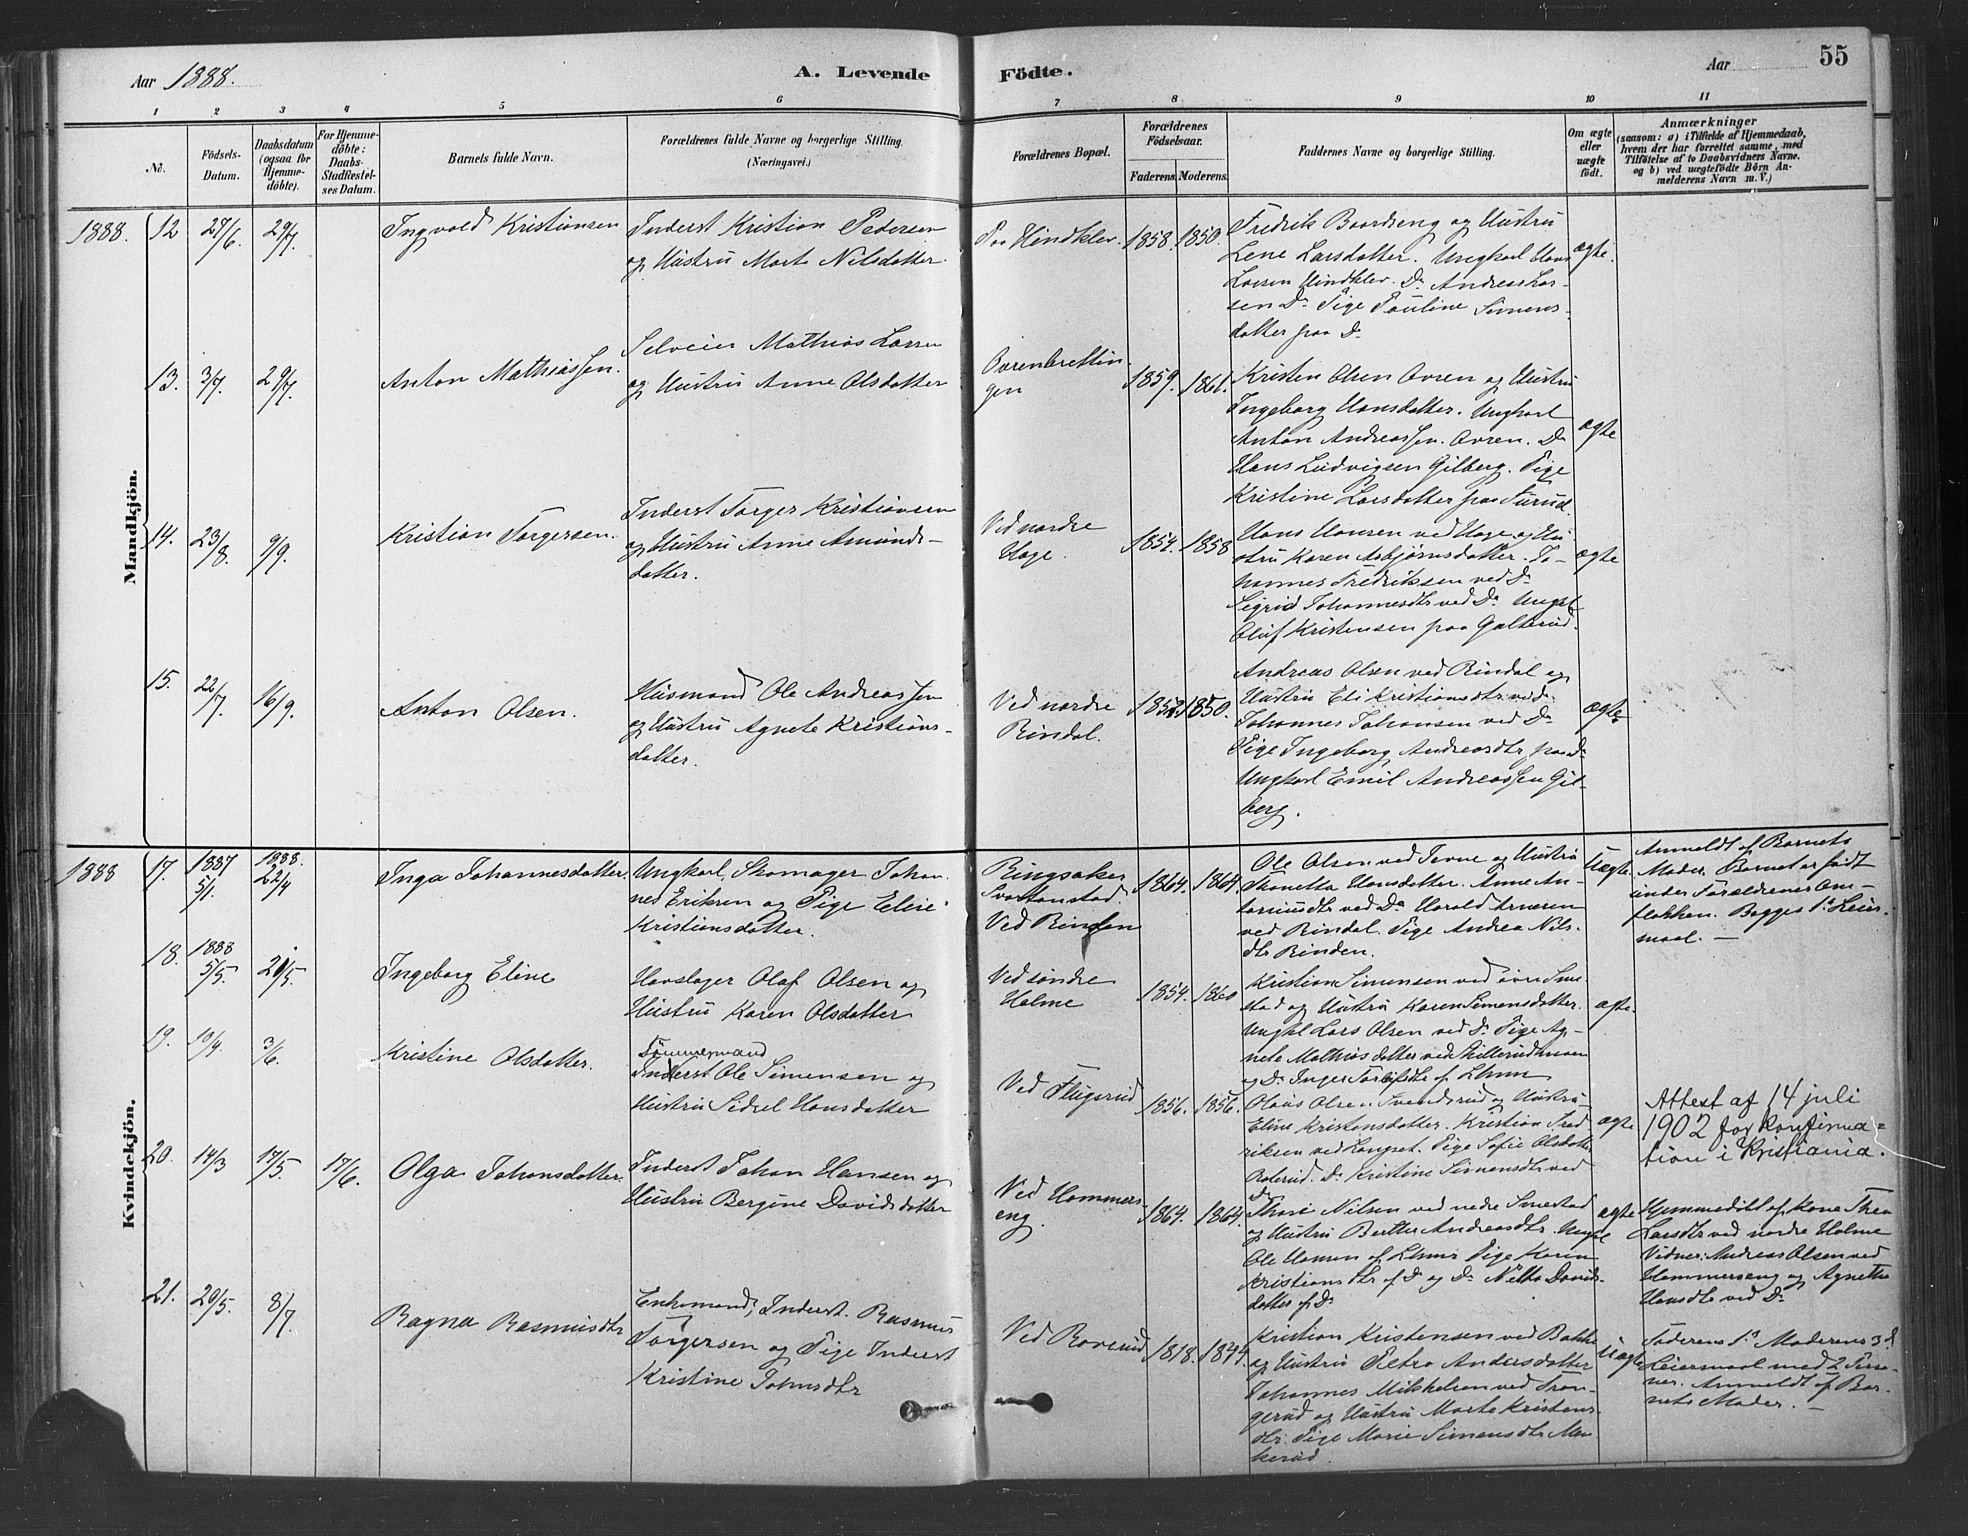 Aar 1888.
A. Levende
Födte.
Aar
55
1
2
3
4
5
6
7
8
9
10
11
No.
Födsels-
Datum.
Daabsdatum
(ogsaa for
Hjemme-
döbte).
For Hjemme-
döbte:
Daabs-
Stadfæstel-
ses Datum.
Barnets fulde Navn.
Forældrenes fulde Navne og borgerlige Stilling.
(Næringsvei.)
Forældrenes Bopæl.
Forældrenes
Födselsaar.
Faderens.
Moderens.
Faddernes Navne og borgerlige Stilling.
Om ægte
eller
uægte
födt.
Anmærkninger
(saasom: a) i Tilfælde af Hjemmedaab,
hvem der har forrettet samme, med
Tilföielse af to Daabsvidners Navne.
og b) ved uægtefödte Börn An-
melderens Navn m. V.)
Mandkjön.
1888.
12
27/6.
29/7.
Ingvald Kristiansen
Inderst Kristian Pedersen
og Hustru Marte Nilsdatter.
Paa Hindklev.
1858.
1850.
Fredrik Baardseng og Hustru
Lene Larsdatter. Ungkarl Hans
Larsen Hindklev. Do Andreas Lar-
sen Do Pige Pauline Simens-
datter paa Do
ægte.
13.
3/7.
29/7.
Anton Mathiassen.
Selveier Mathias Larsen
og Hustru Anne Olsdatter
gen
1859.
1861.
Kristen Olsen Ovren og Hustru
Ingeborg Hansdatter. Ungkarl
Anton Andreassen. Ovren. Do
Hans Ludvigsen Gilberg. Pige
Kristine Larsdatter paa Furud.
ægte
14.
23/8.
9/9.
Kristian Torgersen.
Inderst Torger Kristiansen
og Hustru Anne Amunds-
datter.
Ved nordre
Hage.
1854.
1858
Hans Hansen ved Hage og Hu-
stru Karen Asbjørnsdatter. Jo-
hannes Fredriksen ved Do
Sigrid Johannesdtr ved Do Ungkl
Olaf Kristensen paa Galterud.
ægte
15.
22/7.
16/9.
Anton Olsen.
Husmand Ole Andreassen
og Hustru Agnete Kristians-
datter.
Ved nordre
Rindal.
1850.
Andreas Olsen ved Rindal og
Hustru Eli Kristiansdtr ved Do
Johannes Johansen ved Do
Pige Ingeborg Andreasdtr paa Do
Ungkarl Emil Andreassen Gil-
berg.
ægte
Kvindekjön.
1888
17.
1887
5/1.
1888.
22/4
Inga Johannesdatter.
Ungkarl, Skomager Johan-
nes Eriksen og Pige Eline
Kristiansdatter.
Ringsaker
Svartanstad.
Ved Rinden
1864.
1864.
Ole Olsen ved Tevne og Hustru
Thonetta Hansdatter. Anne An-
toniusdtr ved Do Harald Arnesen
ved Rindal. Pige Andrea Nils-
dtr Rinden.
Uægte
Anmeldt af Barnets
Moder. Barnet er født
under Forældrenes Om-
flakken. Begges 1ste Leier-
maal. —
18.
1888
5/5.
20/5.
Ingeborg Eline
Hovslager Olaf Olsen og
Hustru Karen Olsdatter
Ved søndre
Holme
1854.
1860
Kristian Simensen ved øvre Sme-
stad og Hustru Karen Simensdatter.
Ungkl Lars Olsen ved Do Pige Ag-
nete Mathiasdatter ved Skillerudhusen
og Do Inger
ægte.
19.
10/4.
3/6.
Kristine Olsdatter.
Tømmermand
Inderst Ole Simensen og
Hustru Sidsel Hansdatter
Ved Flugsrud
1856.
1856.
Olaus Olsen Svendsrud og Hustru
Eline Kristensdatter. Kristian Fred-
riksen ved Longset. Pige Sofie Olsdatter
Roterud. Do Kristine Simensdtr ved
Do
ægte
Attest af 14 juli
1902 for konfirma-
tion i Kristiania.
20.
14/3
17/5.
17/6.
Olga Johansdatter.
Inderst Johan Hansen og
Hustru Bergine Davidsdatter
Ved Hammers-
eng.
1864.
1864.
Thore Nilsen ved nedre Smestad
og Hustru Berthe Andreasdtr. Ungkl
Ole Hansen af Pige Karen
Kristiansdtr af Do og Do Netta Davids-
datter af Do
ægte
Hjemmedøbt af Kone Thea
Larsdtr ved nordre Holme
Vidner: Andreas Olsen ved
Hammerseng og Agnethe
Hansdtr ved Do
21.
20/5.
8/7.
Ragna Rasmusdtr
Enkemand, Inderst. Rasmus
Torgersen og Pige Inderst
Kristine Johnsdtr
Ved Roverud
1818.
1844.
Kristian Kristensen ved Bakke
og Hustru Petra Andersdatter
Johannes Mikkelsen ved Tron-
gerud og Hustru Marte Kristens-
dtr. Pige Marie Simensdtr Men-
kerud.
Uægte
Faderens 1ste Moderens 3d
Leiermaal med 2 Perso-
ner. Anmeldt af Bar-
nets Moder. —